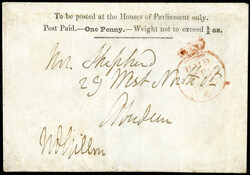 To be posted at the Houses of Parliament only.
Post Paid.—One Penny.—Weight not to exceed ½ oz.
Mr. Shepherd
29 West North St
Aberdeen